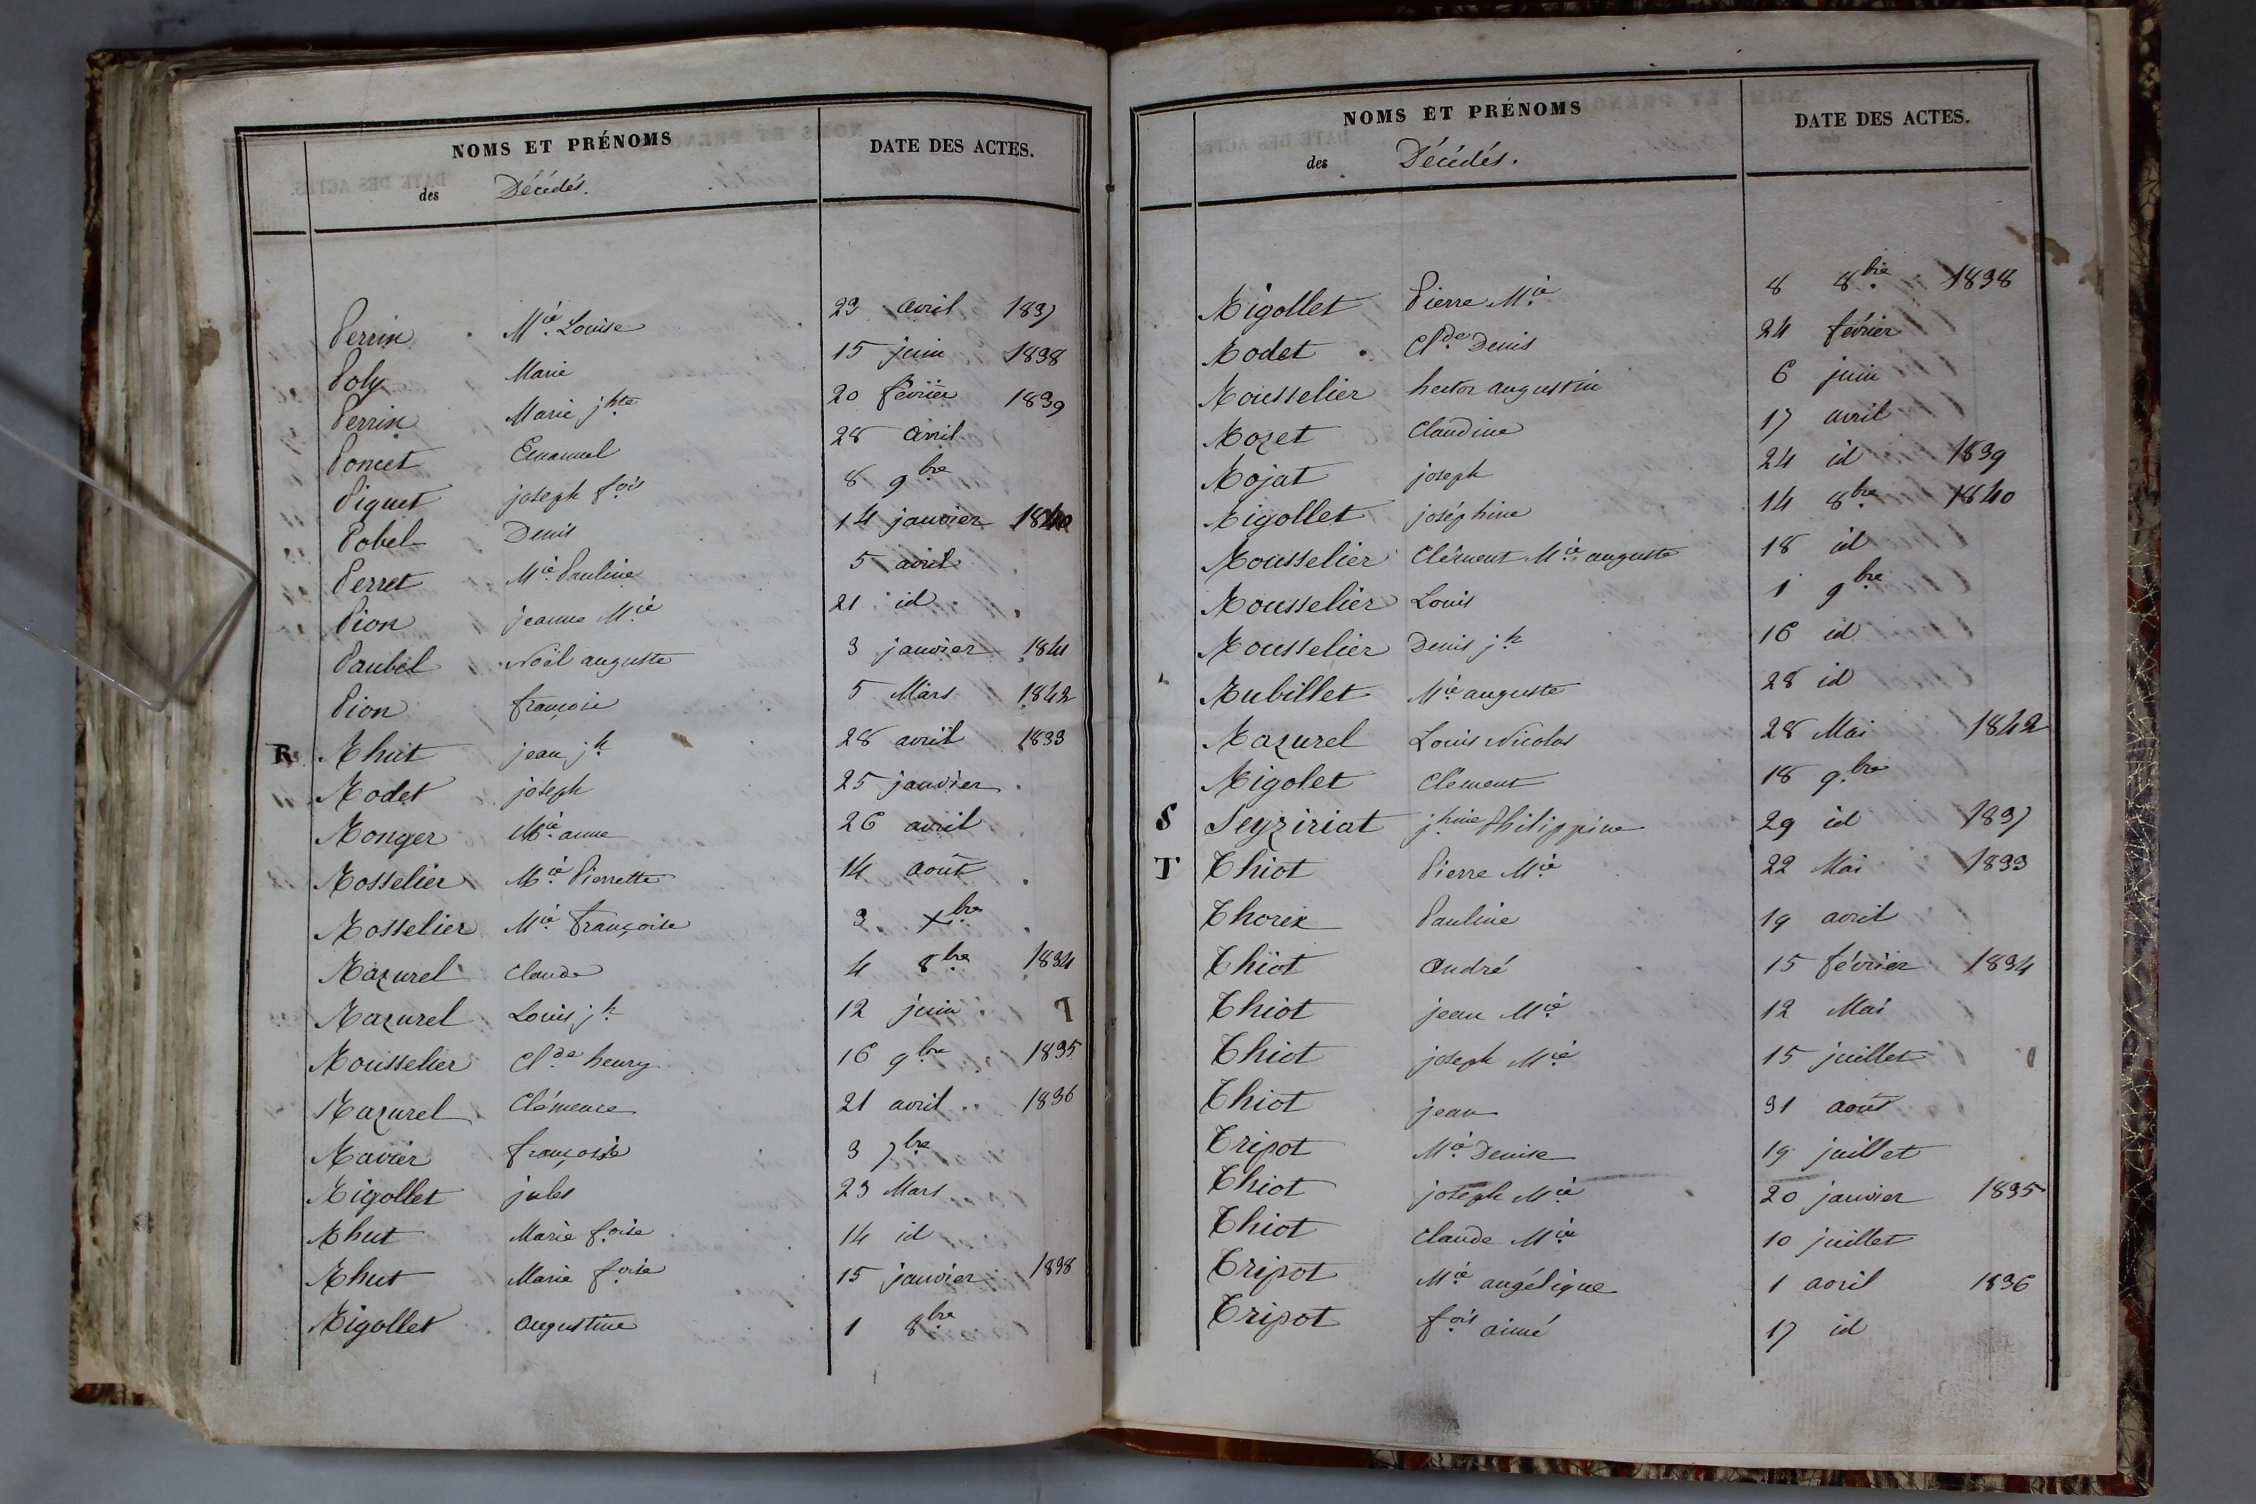 NOMS ET PRÉNOMS
des Décédés.
DATE DES ACTES.
Perrin Mie Louise 23 avril 1837
Poly Marie 15 juin 1838
Perrin Marie jhte 20 février 1839
Poncet Emanuel 28 avril
Piquet joseph fois 8 9bre
Pobel Denis 14 janvier 1840
Perret Mie Pauline 5 avril
Pion jeanne Mie 21 id
Paubel Noël auguste 3 janvier 1841
Pion françois 5 Mars 1842
R Rhut jean jh 28 avril 1833
Rodet joseph 25 janvier
Ronger Mie anne 26 avril
Rosselier Mie Pierrette 14 août
Rosselier Mie françoise 3 Xbre
Razurel Claude 4 8bre 1834
Razurel Louis jh 12 juin
Rousselier Clde henry 16 9bre 1835
Razurel Clémence 21 avril 1836
Ravier françoise 3 7bre
Rigollet jules 23 Mars
Rhut Marie foise 14 id
Rhut Marie foise 15 janvier 1838
Rigollet augustine 1 8bre
NOMS ET PRÉNOMS
des Décédés.
DATE DES ACTES.
Rigollet Pierre Mie 8 8bre 1838
Rodet Clde Denis 24 février
Rousselier hector augustin 6 juin
Rozet Claudine 17 avril
Rojat joseph 24 id 1839
Rigollet joséphine 14 8bre 1840
Rousselier Clément Mie auguste 18 id
Rousselier Louis 1 9bre
Rousselier Denis jh 16 id
Rubillet Mie auguste 28 id
Razurel Louis Nicolas 28 Mai 1842
Rigolet Clément 18 9bre
S Seyziriat jhine Philippine 29 id 1837
T Thiot Pierre Mie 22 Mai 1833
Thorex Pauline 19 avril
Thiot andré 15 février 1834
Thiot jean Mie 12 Mai
Thiot joseph Mie 15 juillet
Thiot jean 31 août
Tripot Mie Denise 19 juillet
Thiot joseph Mie 20 janvier 1835
Thiot Claude Mie 10 juillet
Tripot Mie angélique 1 avril 1836
Tripot fois aimé 17 id